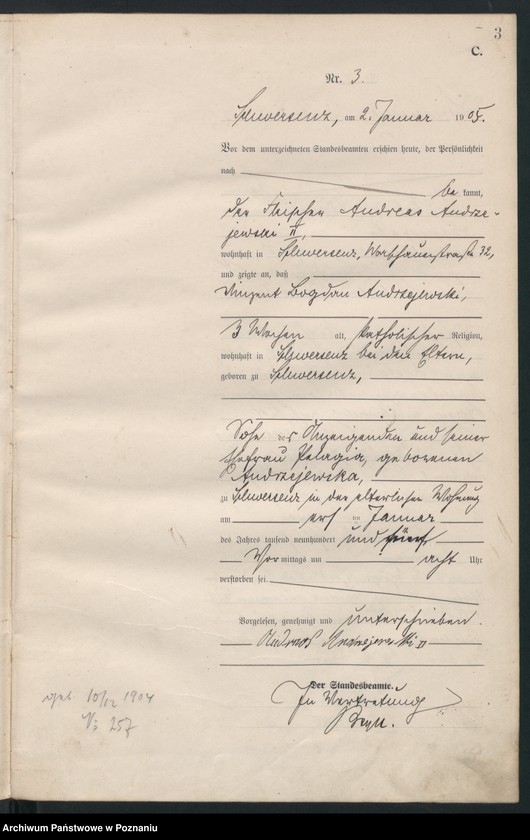 3
C.
Nr. 3.
Schwersenz, am 2. Januar 1905.
Vor dem unterzeichneten Standesbeamten erschien heute, der Persönlichkeit
nach
be kannt,
der Andreas Andrze-
jewski II,
wohnhaft in Schwersenz, 32,
und zeigte an, daß
Vinzent Bogdan Andrzejewski,
3 Wochen alt, katholischer Religion,
wohnhaft in Schwersenz bei den Eltern,
geboren zu Schwersenz,
Sohn des Anzeigenden und seiner
Ehefrau Pelagia, geborenen
Andrzejewska,
zu Schwersenz in der elterlichen Wohnung
am ersten Januar
des Jahres tausend neunhundert und fünf
Vor mittags um acht Uhr
verstorben sei.
Vorgelesen, genehmigt und unterschrieben.
Andreas Andrzejewski II
Der Standesbeamte.
In Vertretung
geb. 10/12 1904
No 257
Archiwum Państwowe w Poznaniu